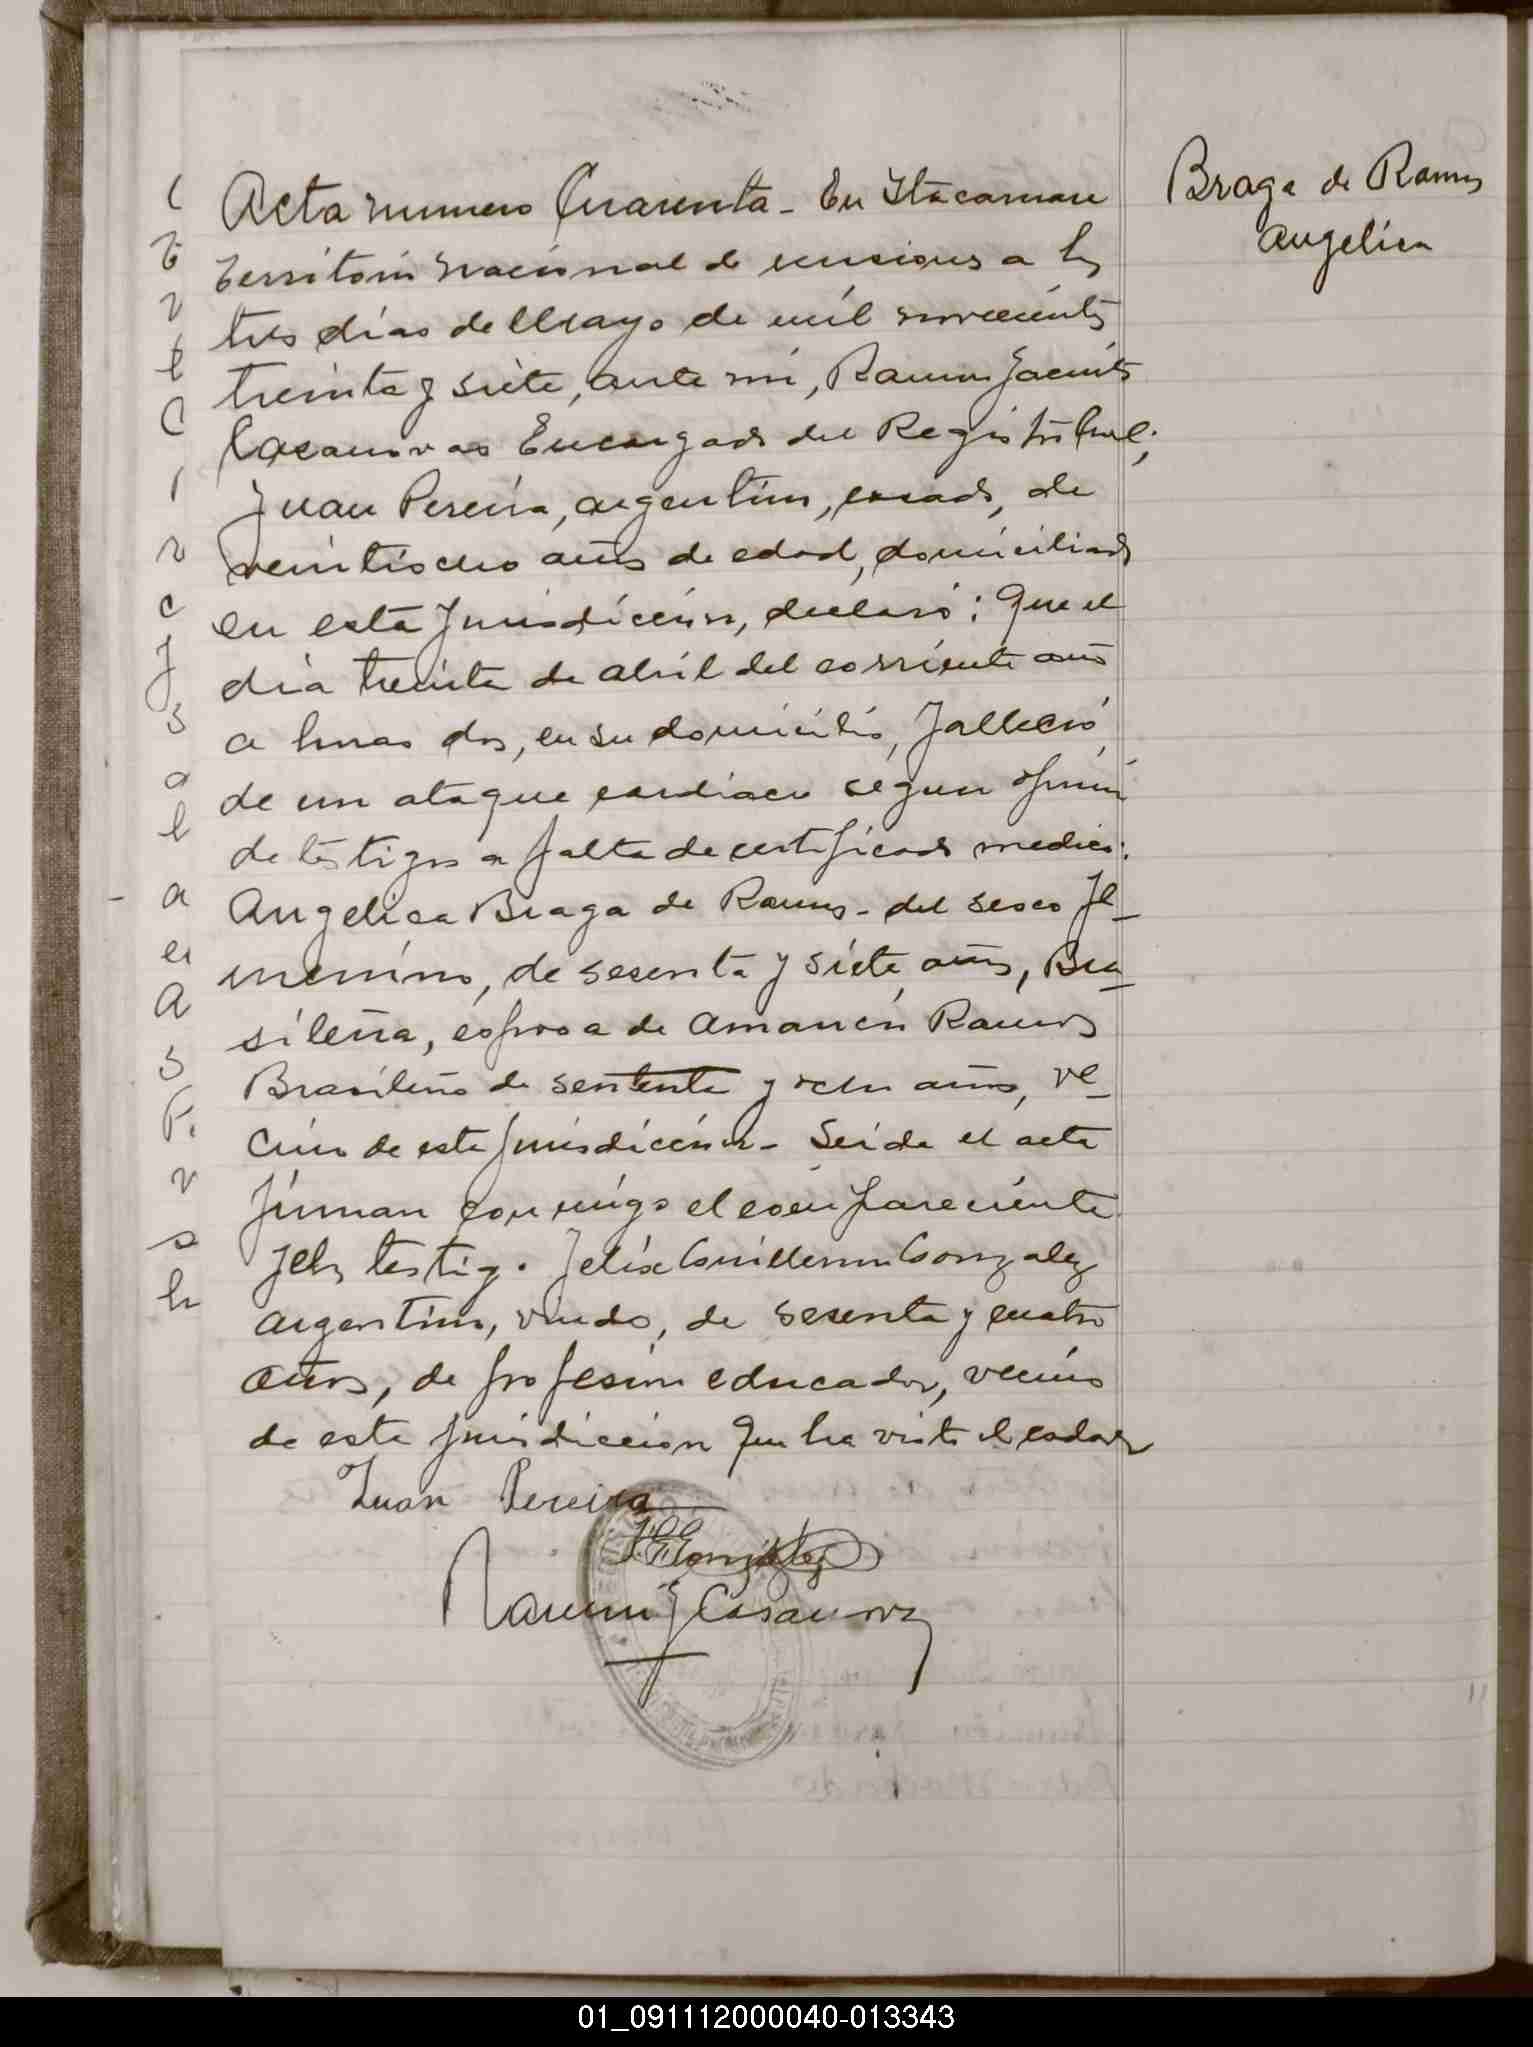 Braga de Ramos
Angelica
Acta numero Cuarenta - En Itacaruare
territorio nacional de misiones a los
tres dias de Mayo de mil novecientos
treinta y siete, ante mi, Ramon Jacinto
Casanovas Encargado del Registro Civil;
Juan Pereira, argentino, casado, de
veintiocho años de edad, domiciliado
en esta Jurisdiccion, declaró: Que el
dia treinta de abril del corriente año
a horas dos, en su domicilio, falleció,
de un ataque cardiaco segun opinion
de testigos a falta de certificado medico:
Angelica Braga de Ramos - del sexo fe-
menino, de sesenta y siete años, Bra-
sileña, esposa de Amancio Ramos
Brasileño de setenta y ocho años, ve-
cino de esta Jurisdiccion - Leida el acta
firman conmigo el compareciente
y el testigo Felix Guillermo Gonzalez
argentino, viudo, de sesenta y cuatro
años, de profesion educador, vecino
de esta jurisdiccion que ha visto el cadaver
Juan Pereira
F. G. Gonzalez
Ramon J Casanovas
01_091112000040-013343